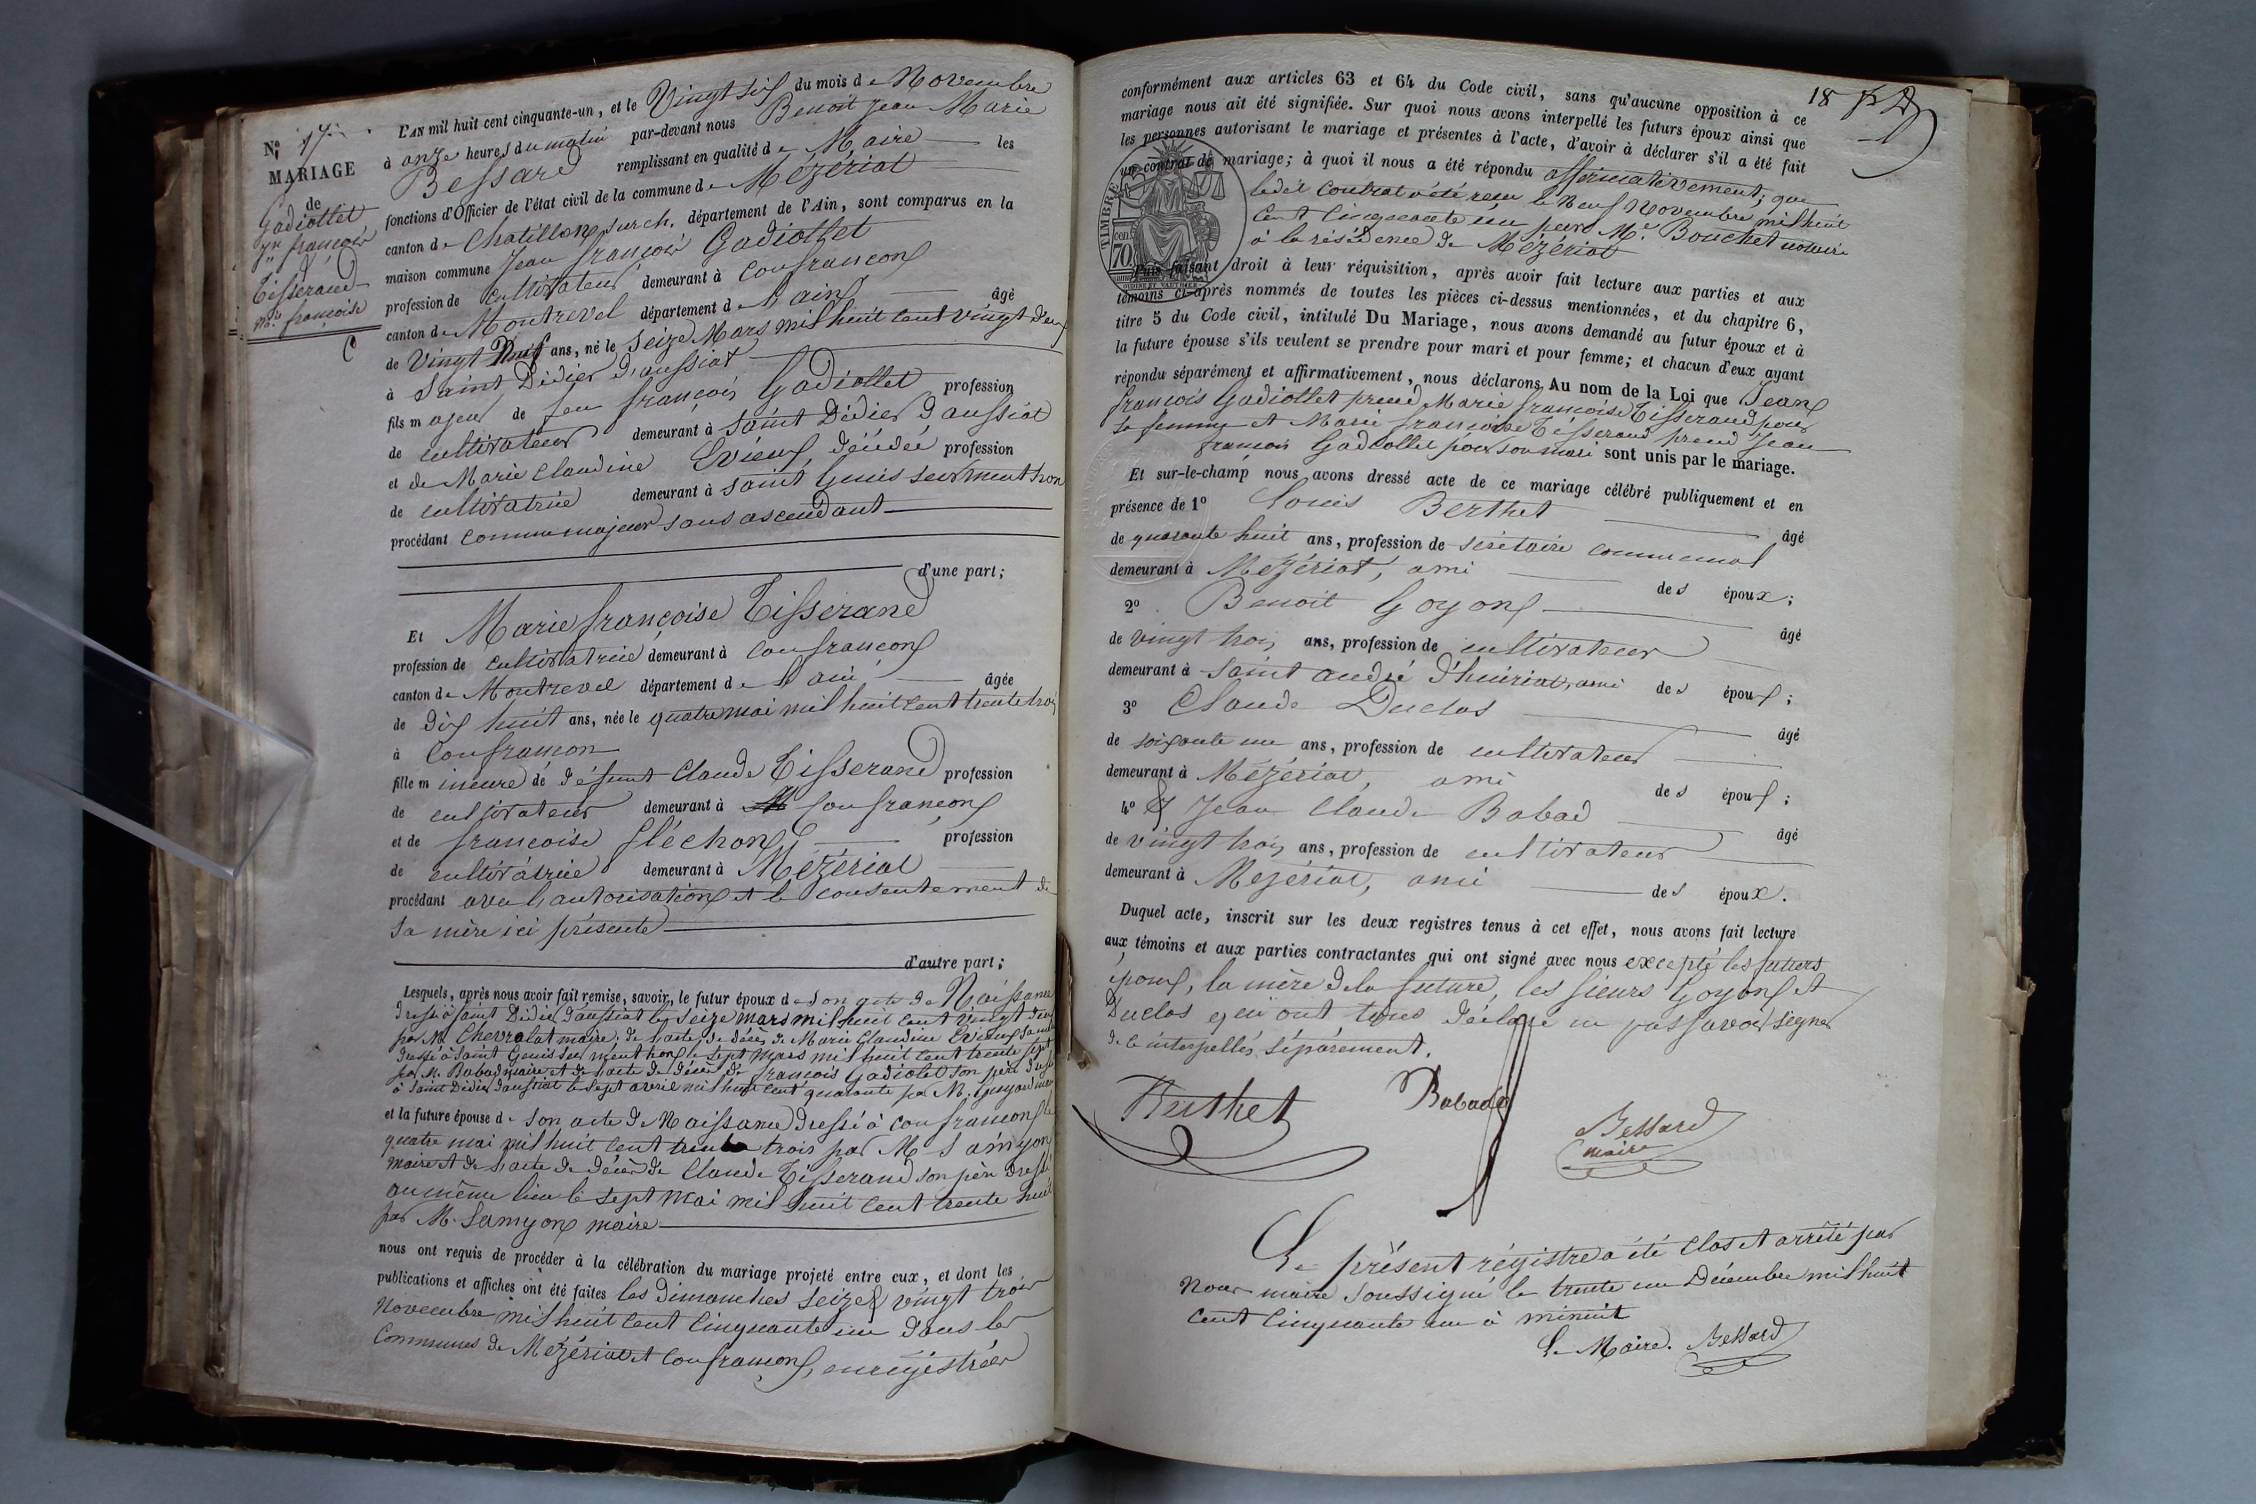 N.° 17.
MARIAGE
de
Gadiollet
Jn françois
Tisserand
M.ie françoise
L'AN mil huit cent cinquante-un, et le Vingt six du mois de Novembre
à onze heures du matin par-devant nous Benoit Jean Marie
Bessard remplissant en qualité de Maire les
fonctions d'Officier de l'état civil de la commune de Mézériat
canton de Chatillon sur ch. département de l'Ain, sont comparus en la
maison commune Jean françois Gadiollet
profession de cultivateur demeurant à Confrançon
canton de Montrevel département de l'ain âgé
de Vingt Neuf ans, né le seize Mars mil huit cent vingt deux
à Saint Didier d'aussiat
fils majeur de feu françois Gadiollet profession
de cultivateur demeurant à Saint Didier d'aussiat
et de Marie Claudine Evieux, décédée profession
de cultivatrice demeurant à Saint Genis sur menthon
procédant comme majeur sans ascendant
d'une part;
Et Marie françoise Tisserand
profession de cultivatrice demeurant à Confrançon
canton de Montrevel département de l'ain âgée
de dix huit ans, née le quatre mai mil huit cent trente trois
à Confrançon
fille mineure de défunt Claude Tisserand profession
de cultivateur demeurant à Confrançon
et de françoise fléchon profession
de cultivatrice demeurant à Mézériat
procédant avec l'autorisation et le consentement de
sa mère ici présente
d'autre part;
Lesquels, après nous avoir fait remise, savoir, le futur époux de son acte de Naissance
dressé à saint Didier d'aussiat le seize mars mil huit cent vingt deux
par M. Chevrolat maire, de l'acte de décès de Marie Claudine Evieux sa mère
dressé à Saint Genis sur menthon le sept mars mil huit cent trente sept
par M. Babad maire et de l'acte de décès de françois Gadiolet son père dressé
à Saint Didier d'aussiat le sept avril mil huit cent quarante par M. Guyard maire
et la future épouse de son acte de Naissance dressé à Confrançon le
quatre mai mil huit cent trente trois par M. Samyon
maire et de l'acte de décès de Claude Tisserand son père dressé
au même lieu le sept mai mil huit cent trente huit
par M. Samyon maire
nous ont requis de procéder à la célébration du mariage projeté entre eux, et dont les
publications et affiches ont été faites les dimanches seize & vingt trois
Novembre mil huit cent cinquante un dans les
Communes de Mézériat et Confrançon, enregistrées
18
conformément aux articles 63 et 64 du Code civil, sans qu'aucune opposition à ce
mariage nous ait été signifiée. Sur quoi nous avons interpellé les futurs époux ainsi que
les personnes autorisant le mariage et présentes à l'acte, d'avoir à déclarer s'il a été fait
un contrat de mariage; à quoi il nous a été répondu affirmativement, que
ledit contrat a été reçu le Neuf Novembre mil huit
cent cinquante un par Me. Bouchet notaire
à la résidence de Mézériat
TIMBRE
70
Puis faisant droit à leur réquisition, après avoir fait lecture aux parties et aux
témoins ci-après nommés de toutes les pièces ci-dessus mentionnées, et du chapitre 6,
titre 5 du Code civil, intitulé Du Mariage, nous avons demandé au futur époux et à
la future épouse s'ils veulent se prendre pour mari et pour femme; et chacun d'eux ayant
répondu séparément et affirmativement, nous déclarons Au nom de la Loi que Jean
françois Gadiollet prend Marie françoise Tisserand pour
sa femme et Marie françoise Tisserand prend Jean
françois Gadiollet pour son mari sont unis par le mariage.
Et sur-le-champ nous avons dressé acte de ce mariage célébré publiquement et en
présence de 1° Louis Berthet âgé
de quarante huit ans, profession de sécretaire communal
demeurant à Mézériat, ami des époux;
2° Benoit Goyon âgé
de vingt trois ans, profession de cultivateur
demeurant à Saint andré d'huiriat, ami des époux;
3° Claude Duclos âgé
de soixante un ans, profession de cultivateur
demeurant à Mézériat, ami des époux;
4° & Jean Claude Babad âgé
de vingt trois ans, profession de cultivateur
demeurant à Mézériat, ami des époux.
Duquel acte, inscrit sur les deux registres tenus à cet effet, nous avons fait lecture
aux témoins et aux parties contractantes qui ont signé avec nous excepté les futurs
époux, la mère de la future, les sieurs Goyon et
Duclos qui ont tous déclaré ne pas savoir signer
de ce interpellés séparément.
Berthet Babad Bessard
maire
Le présent régistre a été clos et arrêté par
Nous maire soussigné le trente un Décembre mil huit
cent cinquante un à minuit
Le Maire. Bessard